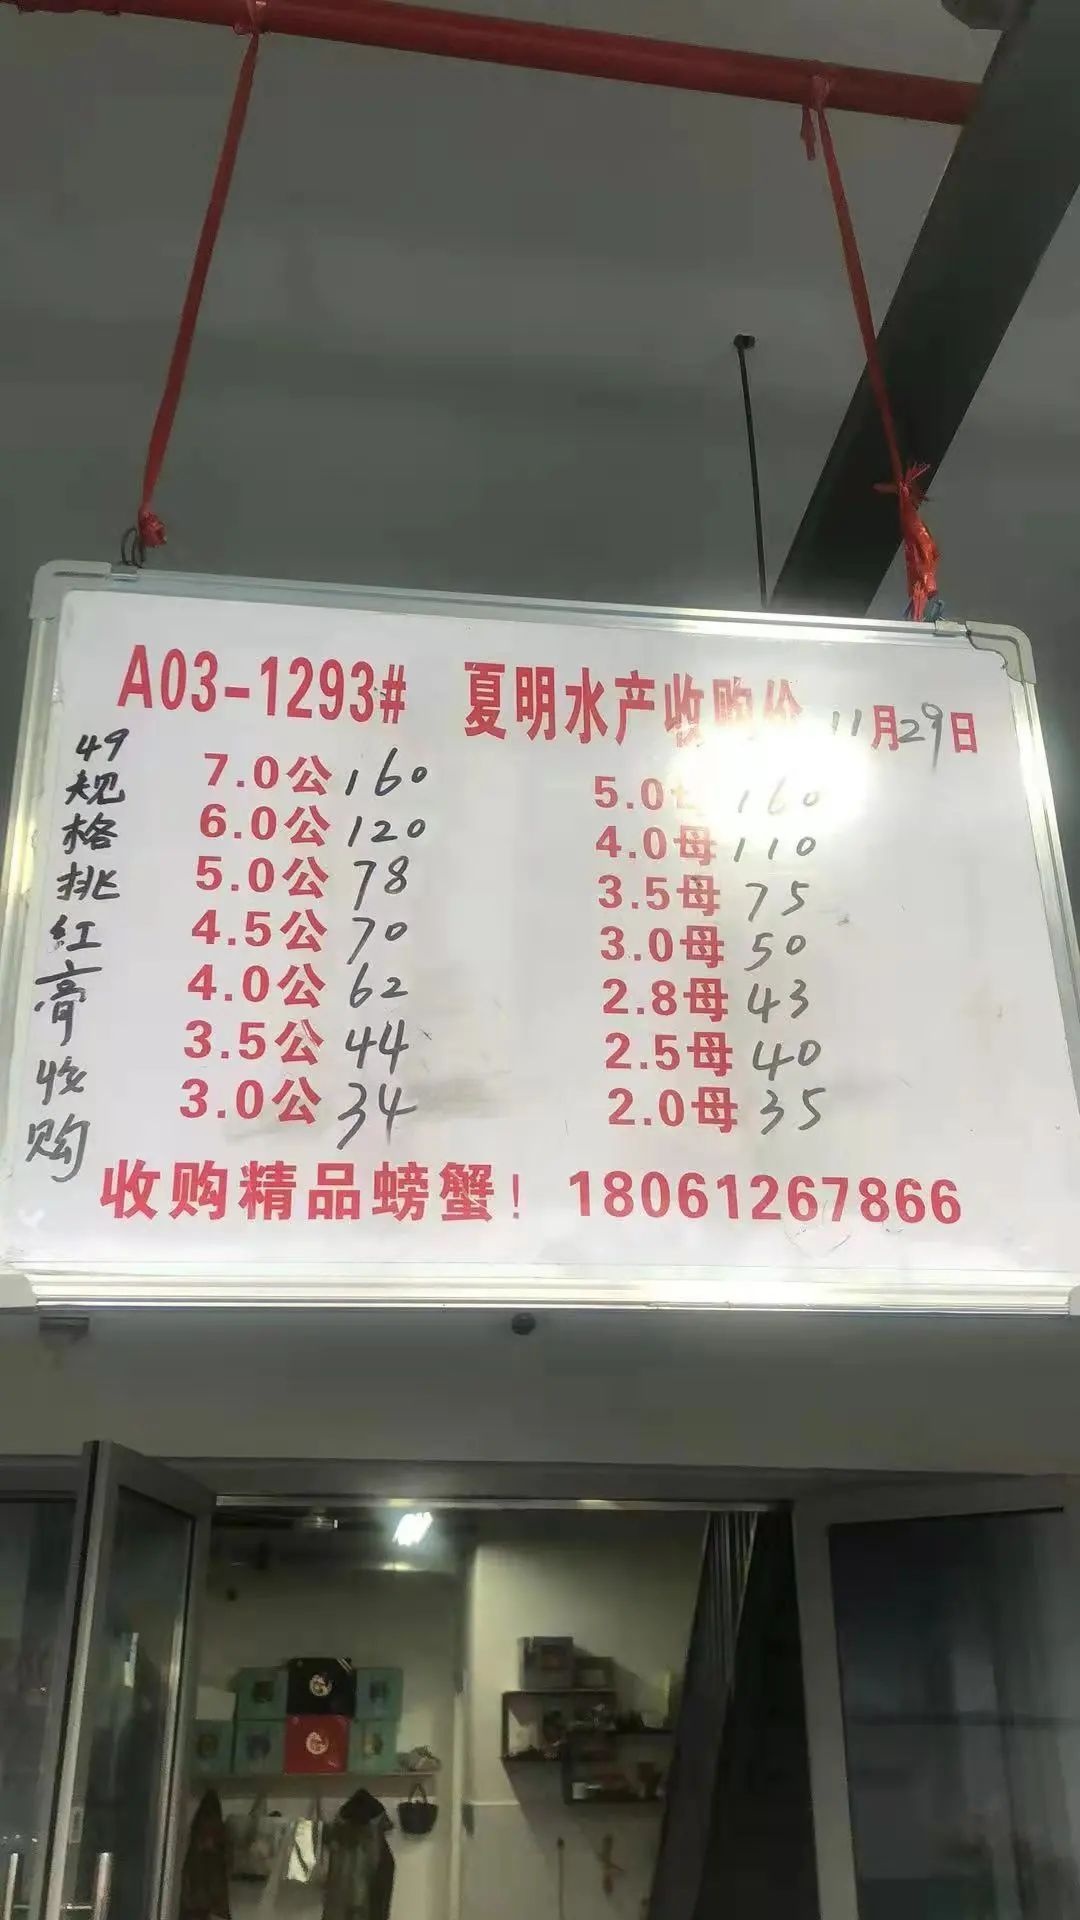 A03-1293# 夏明水产收购价 11月29日
49规格挑红膏收购
7.0公 160 5.0母 160
6.0公 120 4.0母 110
5.0公 78 3.5母 75
4.5公 70 3.0母 50
4.0公 62 2.8母 43
3.5公 44 2.5母 40
3.0公 34 2.0母 35
收购精品螃蟹！ 18061267866